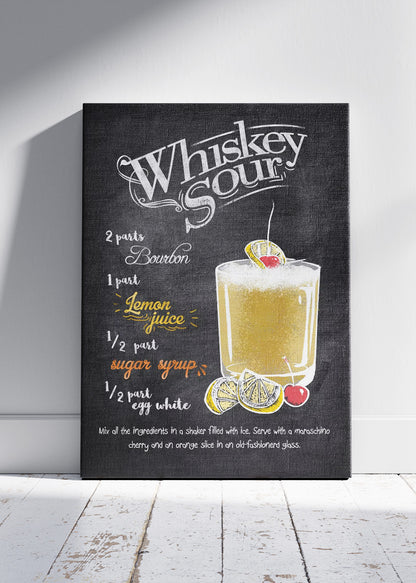 Whiskey
Sour
2 parts
Bourbon
1 part
Lemon
juice
1/2 part
sugar syrup
1/2 part
egg white
Mix all the ingredients in a shaker filled with ice. Serve with a maraschino
cherry and an orange slice in an old-fashionerd glass.